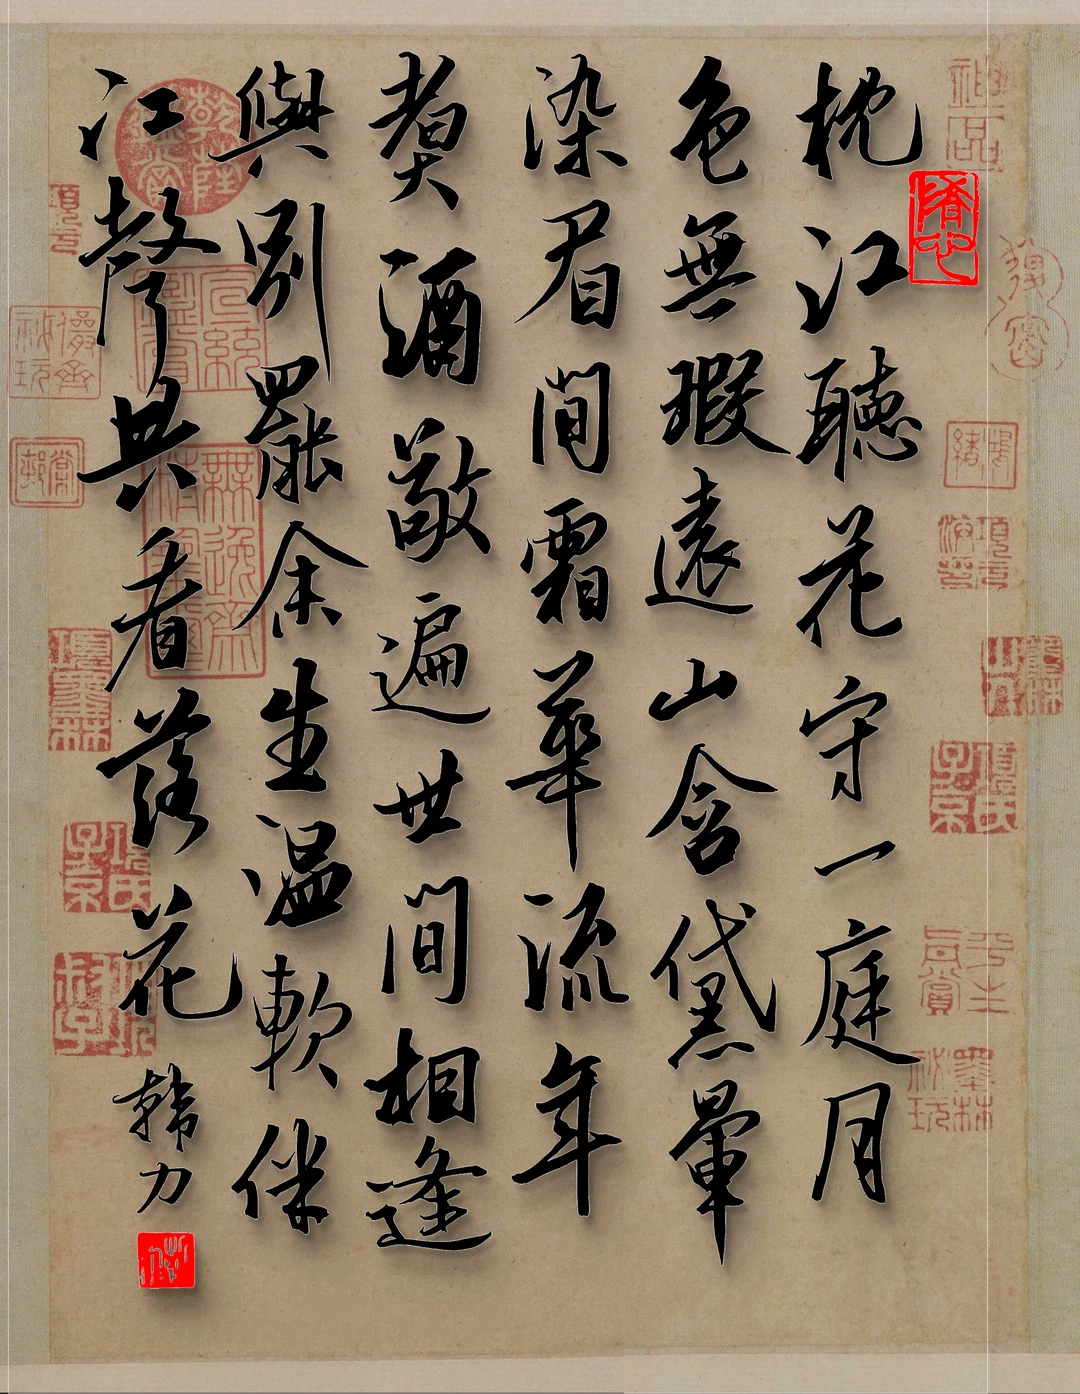 枕江聽花守一庭月
色無瑕遠山含黛暈
染眉間霜華流年
煑酒敬遍世間相逢
與別罷余生温軟伴
江聲共看落花
韓力